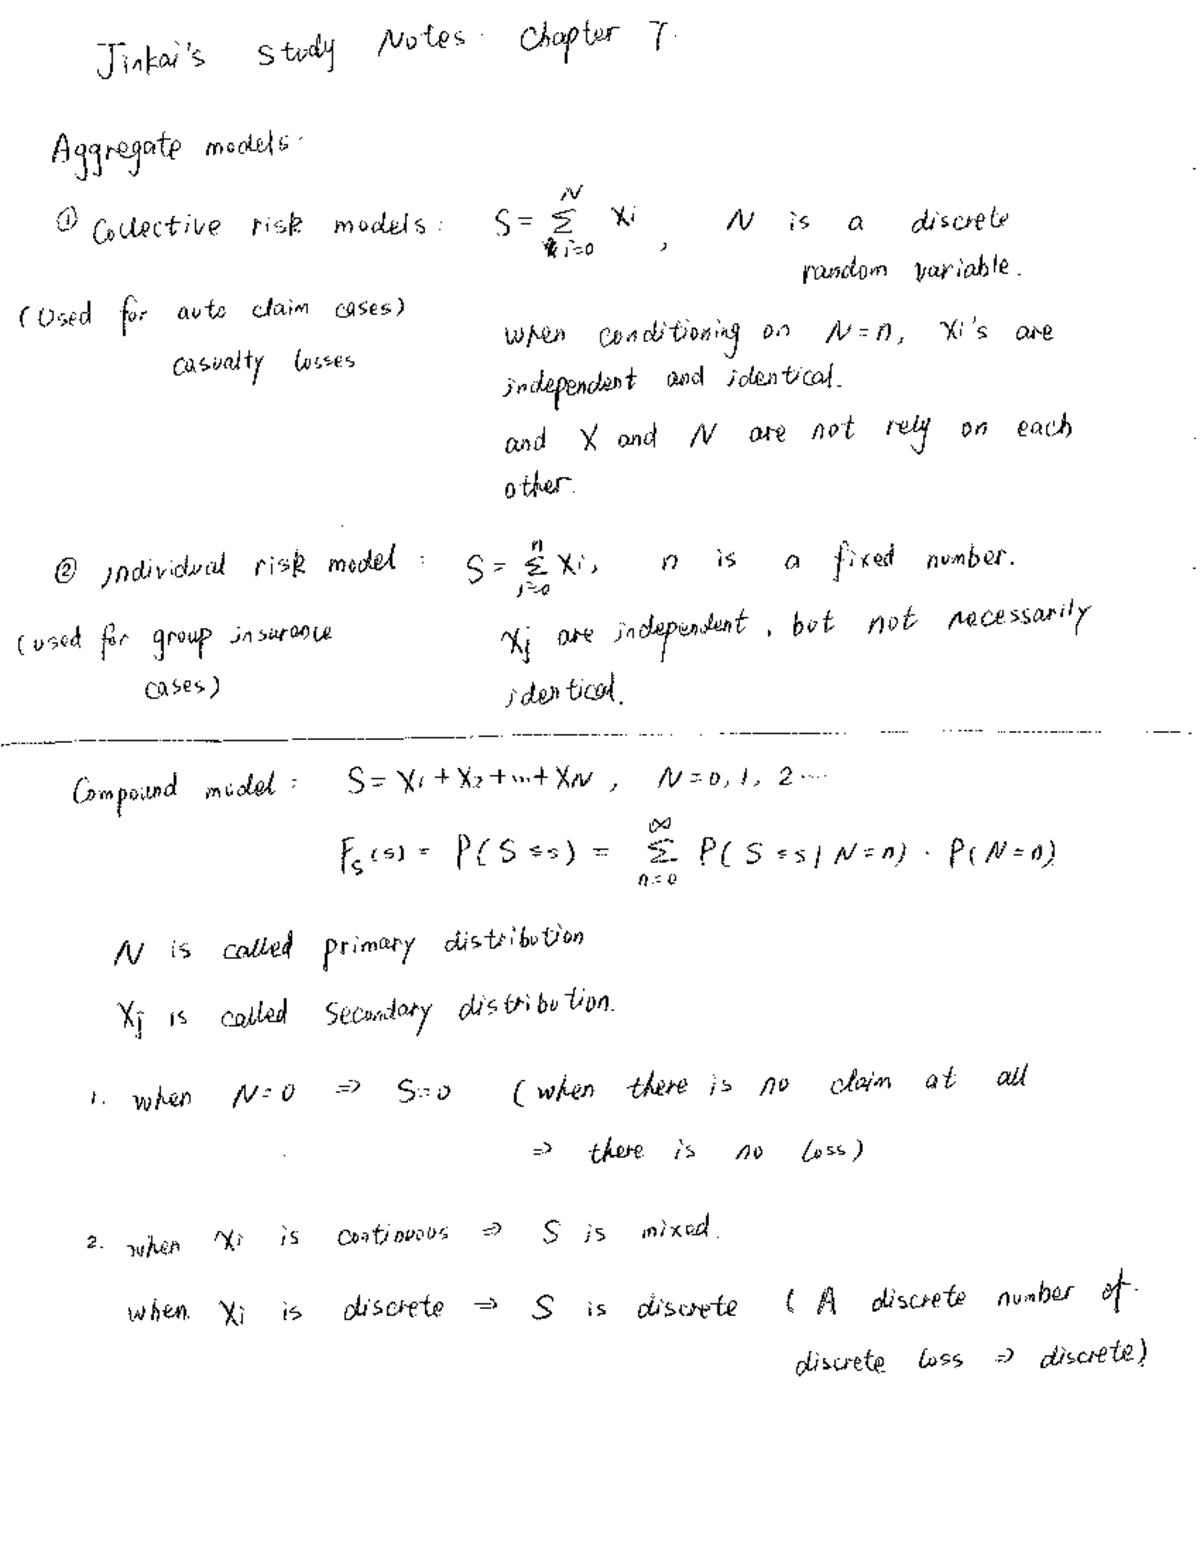 Jinkai's Study Notes. Chapter 7.
Aggregate models.
① Collective risk models: S = Σ_{i=0}^{N} Xi , N is a discrete
random variable.
(Used for auto claim cases)
casualty losses
when conditioning on N=n, Xi's are
independent and identical.
and X and N are not rely on each
other.
② individual risk model: S = Σ_{i=0}^{n} Xi, n is a fixed number.
(used for group insurance
cases)
Xj are independent, but not necessarily
identical.
Compound model: S = X1 + X2 + ... + XN , N = 0, 1, 2 ....
Fs(s) = P(S ≤ s) = Σ_{n=0}^{∞} P(S ≤ s | N=n) · P(N=n)
N is called primary distribution
Xj is called Secondary distribution.
1. when N=0 ⇒ S=0 (when there is no claim at all
⇒ there is no loss)
2. when Xi is continuous ⇒ S is mixed.
when Xi is discrete ⇒ S is discrete (A discrete number of
discrete loss ⇒ discrete)